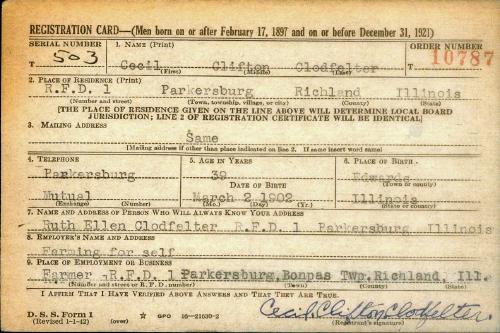 REGISTRATION CARD—(Men born on or after February 17, 1897 and on or before December 31, 1921)
SERIAL NUMBER 1. NAME (Print) ORDER NUMBER
T 503 Cecil Clifton Clodfelter T 10787
(First) (Middle) (Last)
2. PLACE OF RESIDENCE (Print)
R.F.D. 1 Parkersburg Richland Illinois
(Number and street) (Town, township, village, or city) (County) (State)
[THE PLACE OF RESIDENCE GIVEN ON THE LINE ABOVE WILL DETERMINE LOCAL BOARD
JURISDICTION; LINE 2 OF REGISTRATION CERTIFICATE WILL BE IDENTICAL]
3. MAILING ADDRESS
Same
[Mailing address if other than place indicated on line 2. If same insert word same]
4. TELEPHONE 5. AGE IN YEARS 6. PLACE OF BIRTH
Parkersburg 39 Edwards
DATE OF BIRTH (Town or county)
Mutual March 2 1902 Illinois
(Exchange) (Number) (Mo.) (Day) (Yr.) (State or country)
7. NAME AND ADDRESS OF PERSON WHO WILL ALWAYS KNOW YOUR ADDRESS
Ruth Ellen Clodfelter R.F.D. 1 Parkersburg Illinois
8. EMPLOYER'S NAME AND ADDRESS
Farming for self
9. PLACE OF EMPLOYMENT OR BUSINESS
Farmer -R.F.D. 1 Parkersburg,Bonpas Twp.Richland, Ill.
(Number and street or R. F. D. number) (Town) (County) (State)
I AFFIRM THAT I HAVE VERIFIED ABOVE ANSWERS AND THAT THEY ARE TRUE.
Cecil Clifton Clodfelter
D. S. S. Form 1
(Revised 1-1-42) (over) ☆ GPO 16-21630-2 (Registrant's signature)